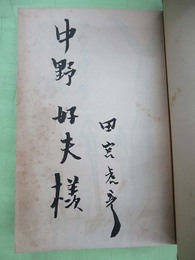 中野好夫様
田宮虎彦